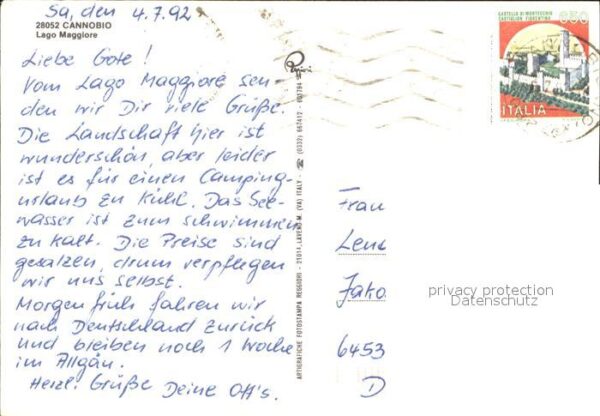 Sa, den 4.7.92
28052 CANNOBIO
Lago Maggiore
Liebe Gote!
Vom Lago Maggiore sen-
den wir Dir viele Grüße.
Die Landschaft hier ist
wunderschön, aber leider
ist es für einen Camping-
urlaub zu kühl. Das See-
wasser ist zum schwimmen
zu kalt. Die Preise sind
gesalzen, drum verpflegen
wir uns selbst.
Morgen früh fahren wir
nach Deutschland zurück
und bleiben noch 1 Woche
im Allgäu.
Herzl. Grüße Deine Ott's.
ARTIGRAFICHE FOTOSTAMPA REGGIORI - 21014 LAVENO M. (VA) ITALY - (0332) 667412
CASTELLO DI MONTECCHIO
CASTIGLION FIORENTINO
650
ITALIA
Frau
Lena
Jako
6453
D
privacy protection
Datenschutz